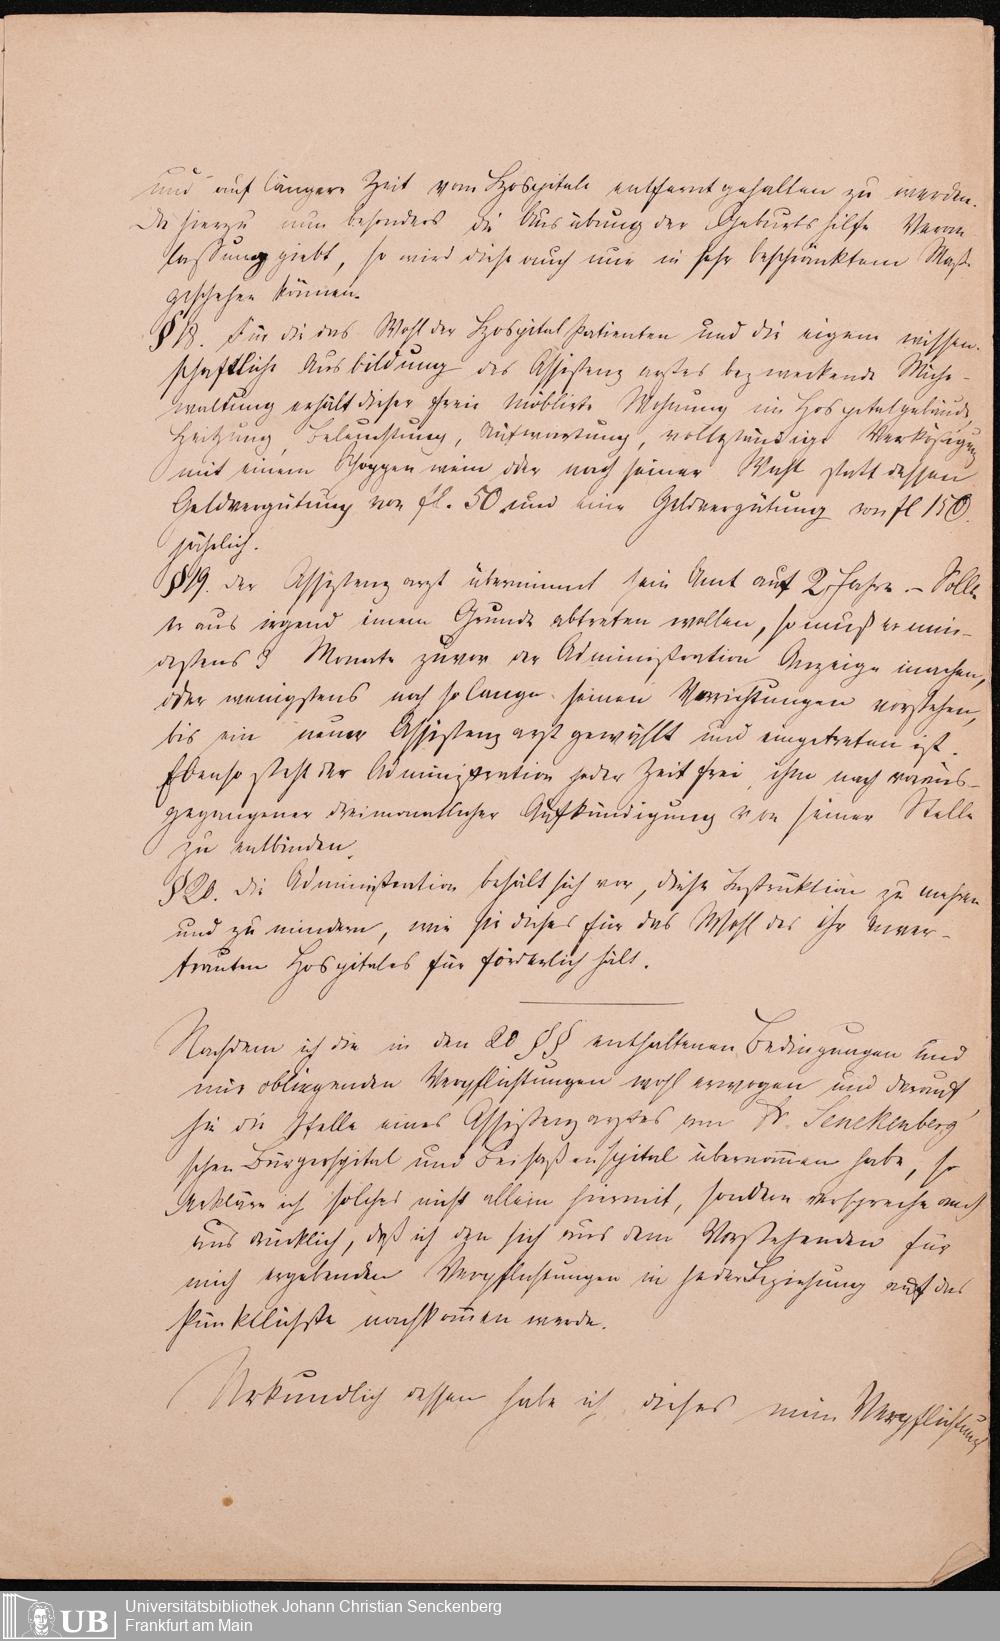 und auf längere Zeit vom Hospitale entfernt gehalten zu werden.
Da hierzu nun besonders die Ausübung der Geburtshilfe Veran-
lassung giebt, so wird diese auch nur in sehr beschränktem Maße
geschehen können.
§ 18. Für die das Wohl der Hospital Patienten und die eigene wissen-
schaftliche Ausbildung des Assistenzarztes bezweckende Mühe-
waltung erhält dieser freie möblirte Wohnung im Hospitalgebäude
Heitzung, Beleuchtung, Aufwartung, vollständige Verköstigung
mit einem Schoppen wein oder nach seiner Wahl statt dessen
Geldvergütung von fl. 50 und eine Geldvergütung von fl 150.
jährlich.
§ 19. Der Assistenzarzt übernimmt sein Amt auf 2 Jahre. – Sollte
er aus irgend einem Grunde abtreten wollen, so muß er min-
destens 3 Monate zuvor der Administration Anzeige machen,
oder wenigstens noch so lange seinen Verrichtungen vorstehen,
bis ein neuer Assistenzarzt gewählt und eingetreten ist.
Ebenso steht der Administration jeder Zeit frei, ihn nach voraus-
gegangener dreimonatlicher Aufkündigung von seiner Stelle
zu entbinden.
§ 20. Die Administration behält sich vor, diese Instruktion zu mehren
und zu mindern, wie sie dieses für das Wohl des ihr anver-
trauten Hospitales für förderlich hält.
Nachdem ich die in den 20 §§ enthaltenen Bedingungen und
mir obliegenden Verpflichtungen wohl erwogen und darauf
hin die Stelle eines Assistenzarztes am Dr. Senckenberg'
schen Bürgerspital und Beisaßenspital übernommen habe, so
erkläre ich solches nicht allein hiermit, sondern verspreche auch
ausdrücklich, daß ich den sich aus dem Vorstehenden für
mich ergebenden Verpflichtungen in jeder Beziehung auf das
Pünktlichste nachkommen werde.
Urkundlich dessen habe ich dieses mein Verpflichtung
Universitätsbibliothek Johann Christian Senckenberg
Frankfurt am Main
UB